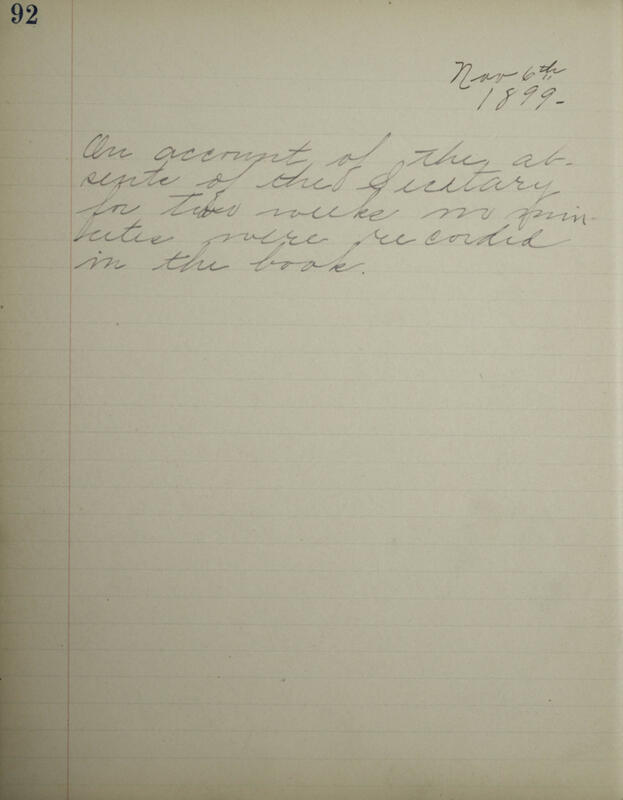 92
Nov 6th
1899-
On account of the ab-
sente of the Secetary
for two weeks no min-
utes were recorded
in the book.